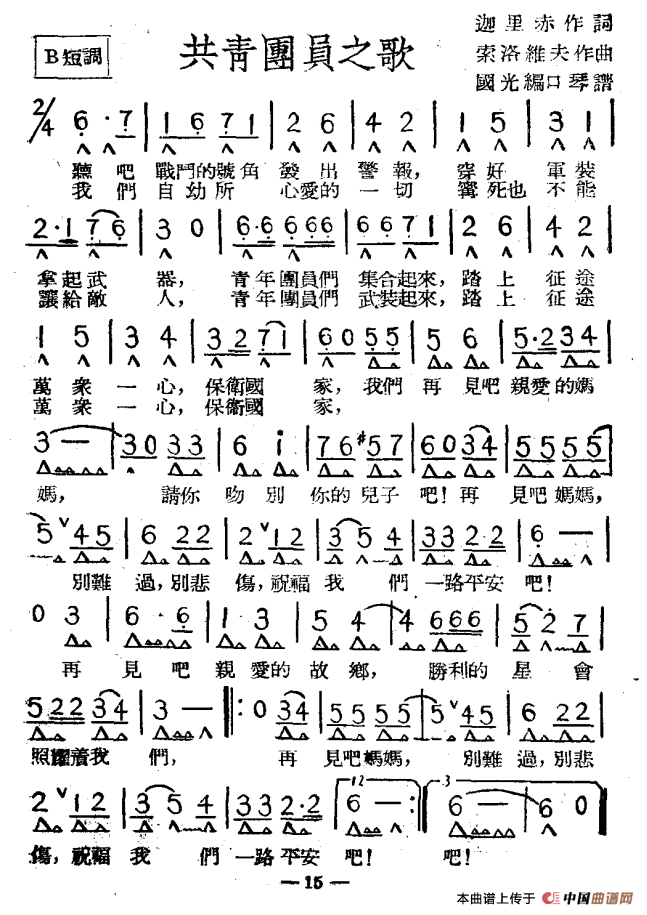 B短調
共青團員之歌
迦里赤作詞
索洛維夫作曲
國光編口琴譜
2/4 6·7 | 1 6 7 1 | 2 6 | 4 2 | 1 5 | 3 1 |
聽吧 戰鬥的號角 發出 警報, 穿好 軍裝
我們 自幼所 心愛的 一切 寗死也 不能
2·1 7 6 | 3 0 | 6·6 6 6 6 | 6 6 7 1 | 2 6 | 4 2 |
拿起武 器, 青年團員們 集合起來, 踏上 征途
讓給敵 人, 青年團員們 武裝起來, 踏上 征途
1 5 | 3 4 | 3 2 7 1 | 6 0 5 5 | 5 6 | 5·2 3 4 |
萬衆 一心, 保衛國 家, 我們 再見吧 親愛的媽
萬衆 一心, 保衛國 家,
3 — | 3 0 3 3 | 6 i | 7 6 #5 7 | 6 0 3 4 | 5 5 5 5 |
媽, 請你 吻別 你的兒子 吧! 再 見吧媽媽,
5 ∨ 4 5 | 6 2 2 | 2 ∨ 1 2 | 3 5 4 | 3 3 2·2 | 6 — |
別難 過, 別悲 傷, 祝福 我 們 一路平安 吧!
0 3 | 6·6 | 1 3 | 5 4 | 4 6 6 6 | 5 2 7 |
再 見吧 親愛的 故 鄉, 勝利的 星 會
5 2 2 3 4 | 3 — :‖: 0 3 4 | 5 5 5 5 | 5 ∨ 4 5 | 6 2 2 |
照耀着我 們, 再 見吧媽媽, 別難 過, 別悲
2 ∨ 1 2 | 3 5 4 | 3 3 2·2 | 12 6 — :‖ 3 6 — | 6 0 ‖
傷, 祝福 我 們 一路平安 吧! 吧!
— 15 —
本曲谱上传于 中国曲谱网